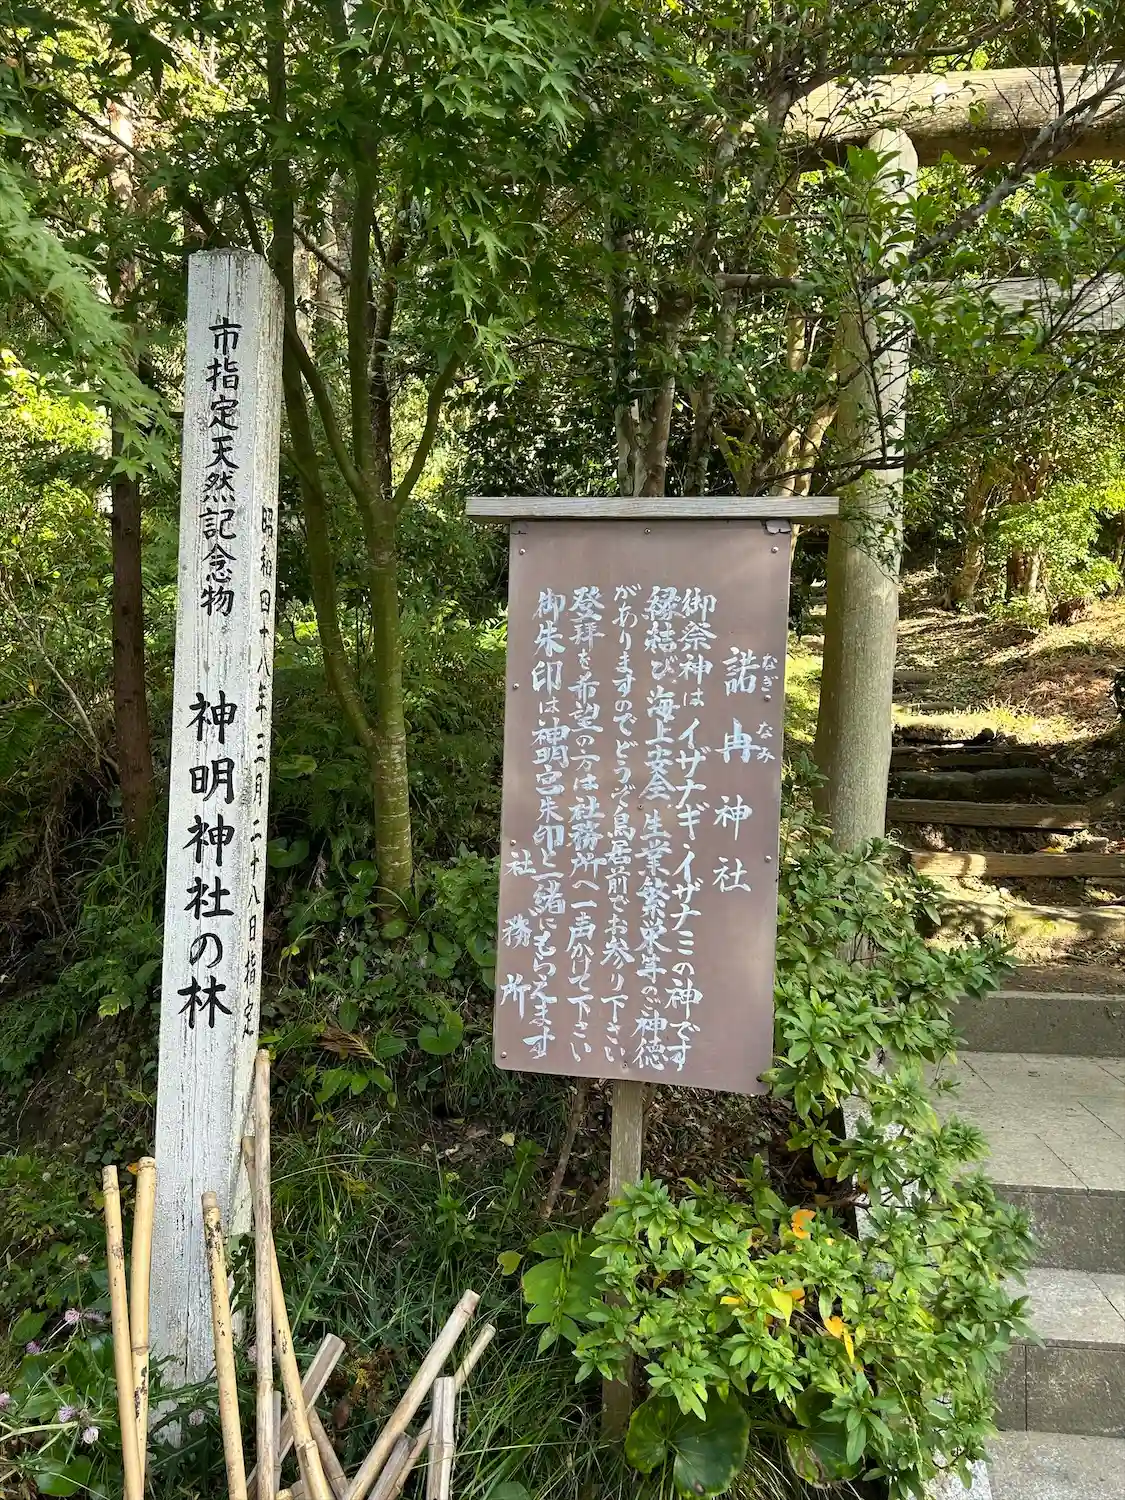 市指定天然記念物 神明神社の林
昭和四十八年三月二十八日指定
諾冉神社
なぎ なみ
御祭神はイザナギ・イザナミの神です
縁結び海上安全生業繁栄等のご神徳
がありますのでどうぞ鳥居前でお参り下さい
登拝を希望の方は社務所へ一声かけて下さい
御朱印は神明宮朱印と一緒にもらえます
社務所